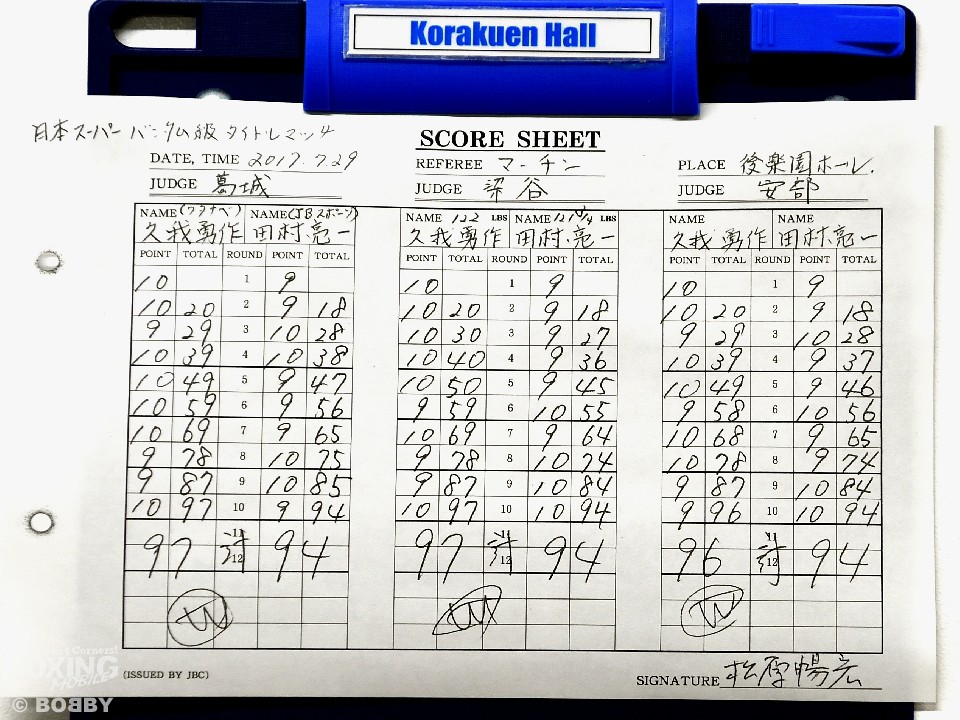 Korakuen Hall
日本スーパーバンタム級タイトルマッチ
SCORE SHEET
DATE, TIME 2017.7.29 REFEREE マーチン PLACE 後楽園ホール.
JUDGE 葛城 JUDGE 染谷 JUDGE 安部
NAME (ワタナベ) NAME (JBスポーツ) NAME 122 LBS NAME 121 3/4 LBS NAME NAME
久我勇作 田村亮一 久我勇作 田村亮一 久我勇作 田村亮一
POINT TOTAL ROUND POINT TOTAL POINT TOTAL ROUND POINT TOTAL POINT TOTAL ROUND POINT TOTAL
10 1 9 10 1 9 10 1 9
10 20 2 9 18 10 20 2 9 18 10 20 2 9 18
9 29 3 10 28 10 30 3 9 27 9 29 3 10 28
10 39 4 10 38 10 40 4 9 36 10 39 4 9 37
10 49 5 9 47 10 50 5 9 45 10 49 5 9 46
10 59 6 9 56 9 59 6 10 55 9 58 6 10 56
10 69 7 9 65 10 69 7 9 64 10 68 7 9 65
9 78 8 10 75 9 78 8 10 74 10 78 8 9 74
9 87 9 10 85 9 87 9 10 84 9 87 9 10 84
10 97 10 9 94 10 97 10 10 94 9 96 10 10 94
97 計 94 97 計 94 96 計 94
11 11 11
12 12 12
W W W
(ISSUED BY JBC) SIGNATURE 松原暢宏
BOXING
MOBILE
© BOBBY